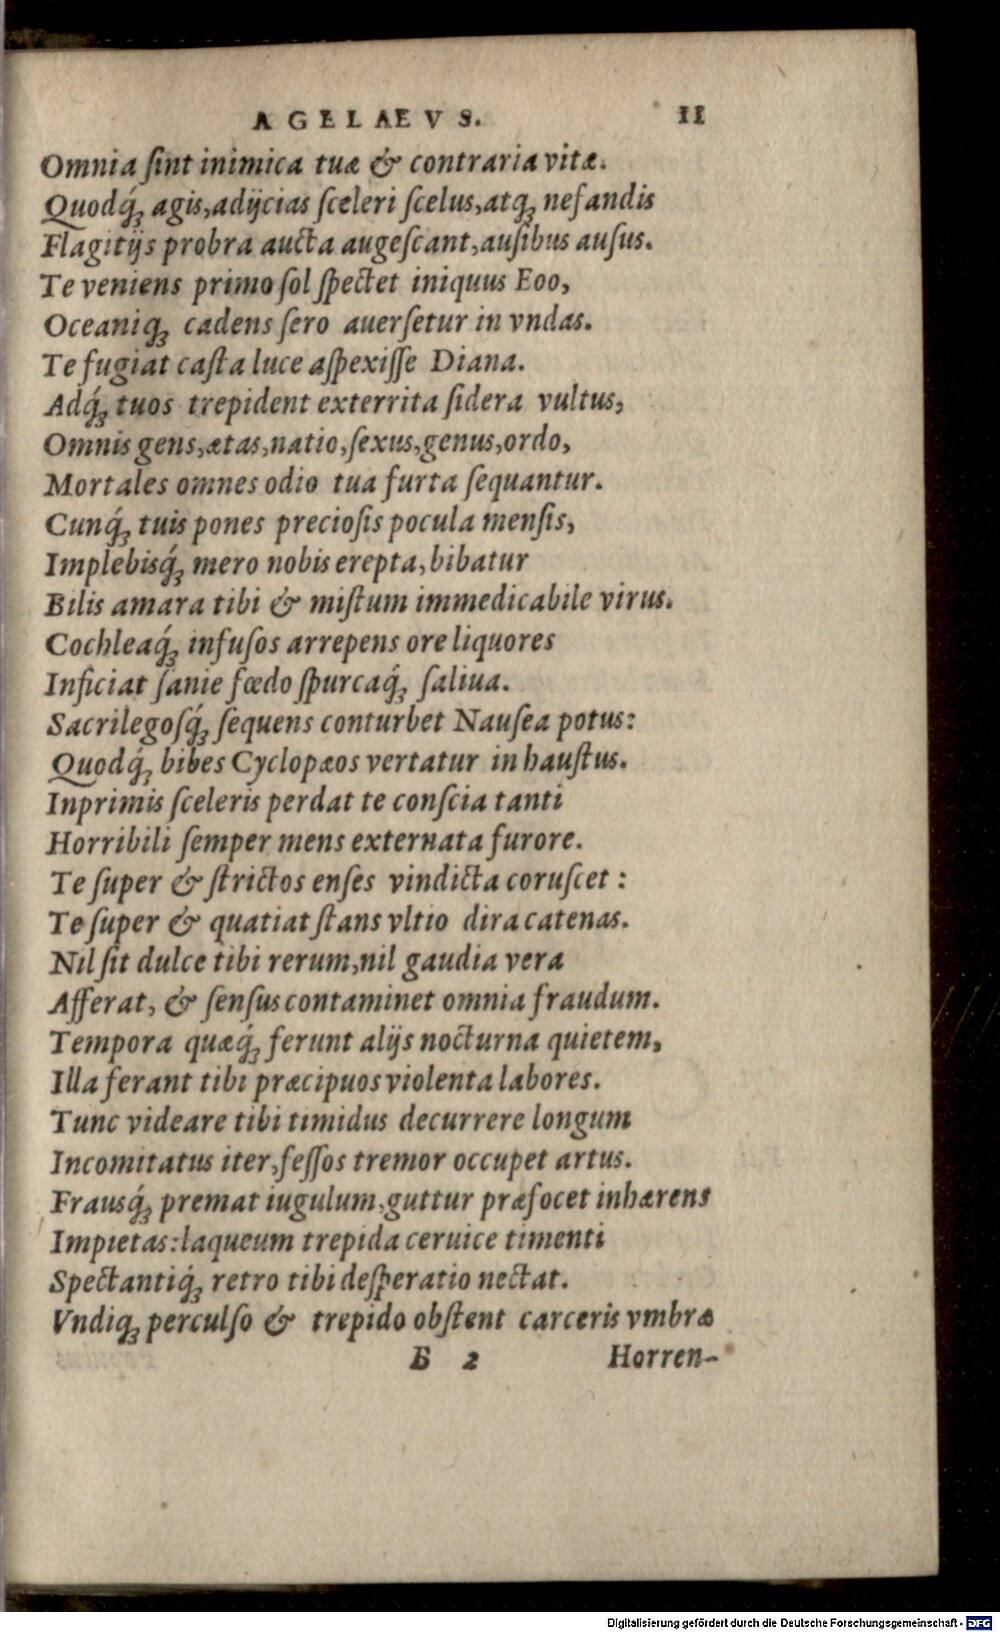 AGELAEVS. 11
Omnia ſint inimica tuæ & contraria vitæ.
Quodq́; agis, adijcias ſceleri ſcelus, atq; nefandis
Flagitijs probra aucta augeſcant, auſibus auſus.
Te veniens primo ſol ſpectet iniquus Eoo,
Oceaniq; cadens ſero auerſetur in vndas.
Te fugiat caſta luce aſpexiſſe Diana.
Adq́; tuos trepident exterrita ſidera vultus,
Omnis gens, ætas, natio, ſexus, genus, ordo,
Mortales omnes odio tua furta ſequantur.
Cunq́; tuis pones precioſis pocula menſis,
Implebisq́; mero nobis erepta, bibatur
Bilis amara tibi & miſtum immedicabile virus.
Cochleaq́; infuſos arrepens ore liquores
Inficiat ſanie fœdo ſpurcaq́; ſaliua.
Sacrilegoſq́; ſequens conturbet Nauſea potus:
Quodq́; bibes Cyclopæos vertatur in hauſtus.
Inprimis ſceleris perdat te conſcia tanti
Horribili ſemper mens externata furore.
Te ſuper & ſtrictos enſes vindicta coruſcet :
Te ſuper & quatiat ſtans vltio dira catenas.
Nil ſit dulce tibi rerum, nil gaudia vera
Afferat, & ſenſus contaminet omnia fraudum.
Tempora quæq́; ferunt alijs nocturna quietem,
Illa ferant tibi præcipuos violenta labores.
Tunc videare tibi timidus decurrere longum
Incomitatus iter, feſſos tremor occupet artus.
Frausq́; premat iugulum, guttur præfocet inhærens
Impietas: laqueum trepida ceruice timenti
Spectantiq́; retro tibi deſperatio nectat.
Vndiq; perculſo & trepido obſtent carceris vmbræ
B 2 Horren-
Digitalisierung gefördert durch die Deutsche Forschungsgemeinschaft - DFG